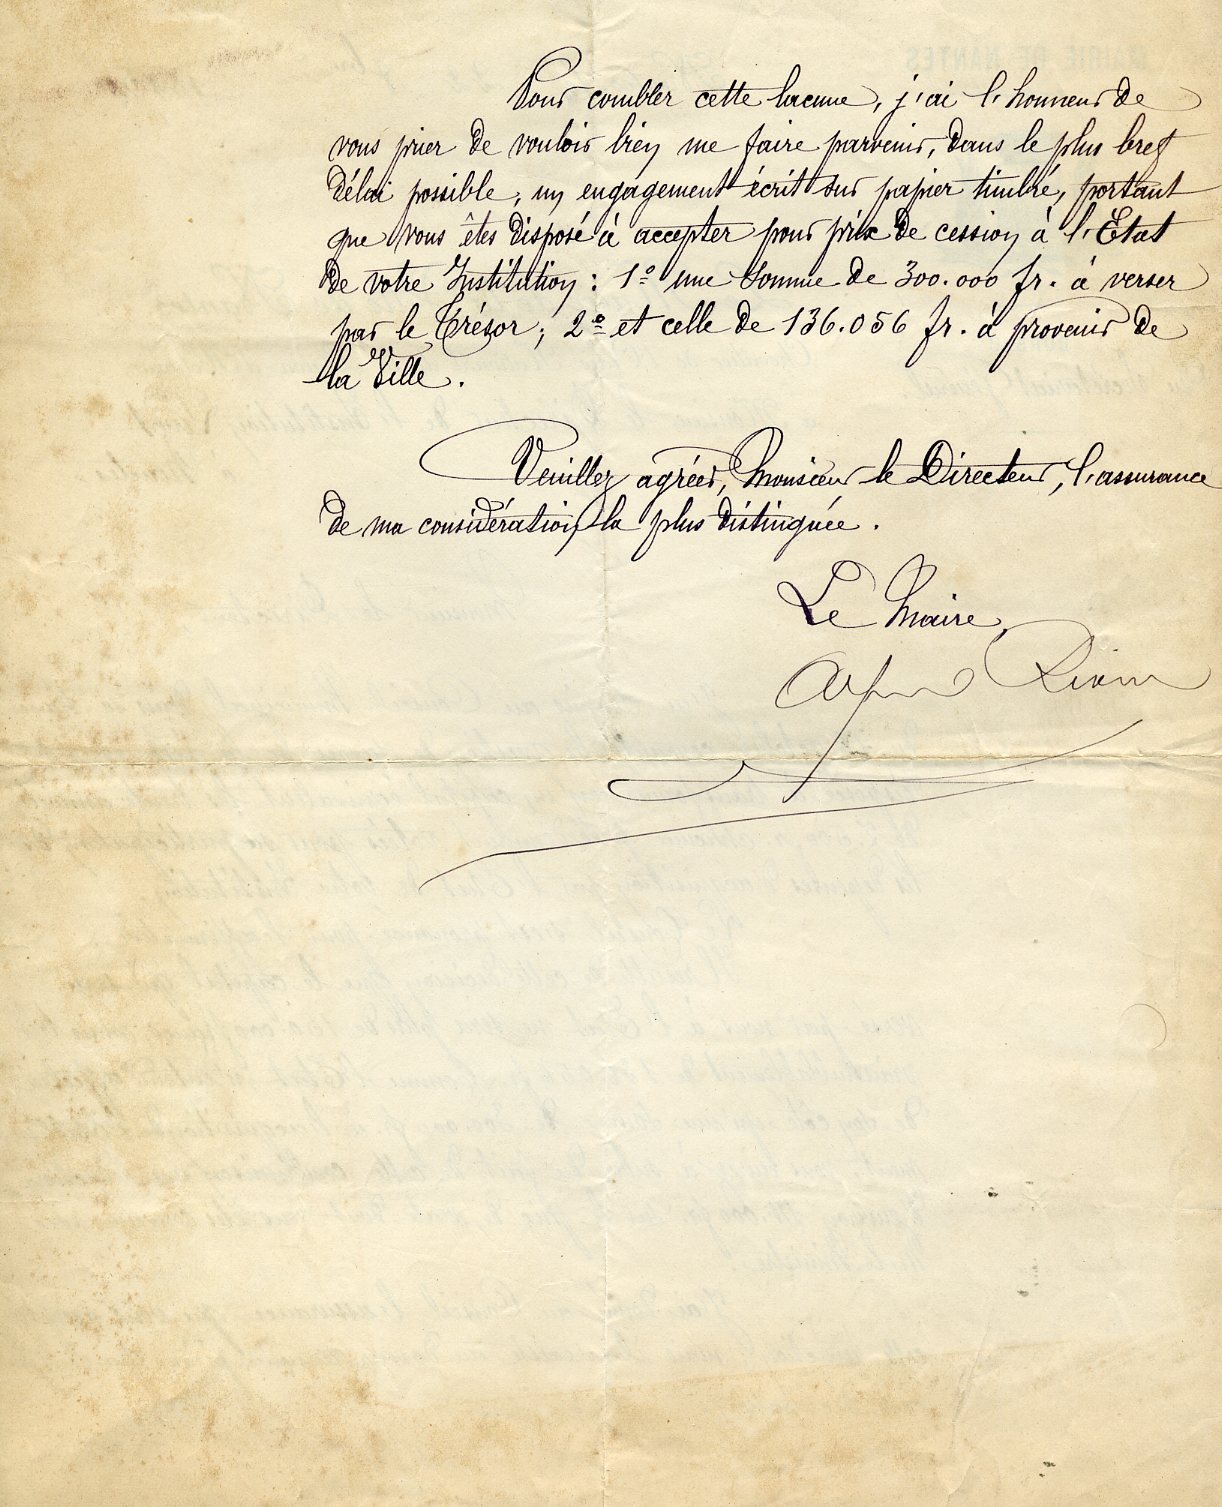 Pour combler cette lacune, j'ai l'honneur de
vous prier de vouloir bien me faire parvenir, dans le plus bref
délai possible, un engagement écrit sur papier timbré, portant
que vous êtes disposé à accepter pour prix de cession à l'État
de votre Institution : 1º une somme de 300.000 fr. à verser
par le Trésor ; 2º et celle de 136.056 fr. à provenir de
la Ville.
Veuillez agréer, Monsieur le Directeur, l'assurance
de ma considération la plus distinguée.
Le Maire,